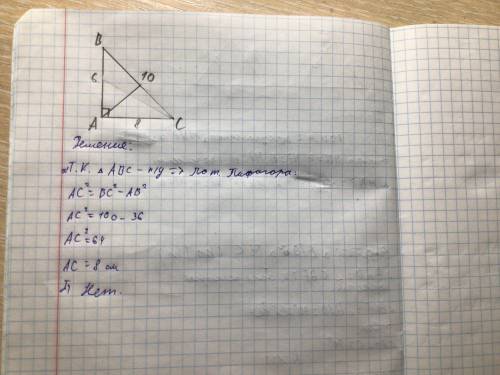 B
6
10
A
8
C
Решение:
а) Т.К. △ ABC - п/у => по т. Пифагора:
AC² = BC² - AB²
AC² = 100 - 36
AC² = 64
AC = 8 см
б) Нет.